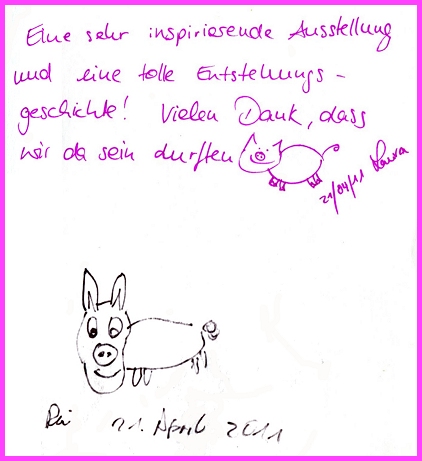 Eine sehr inspirierende Ausstellung
und eine tolle Entstehungs-
geschichte! Vielen Dank, dass
wir da sein durften
21/04/11 Laura
21. April 2011